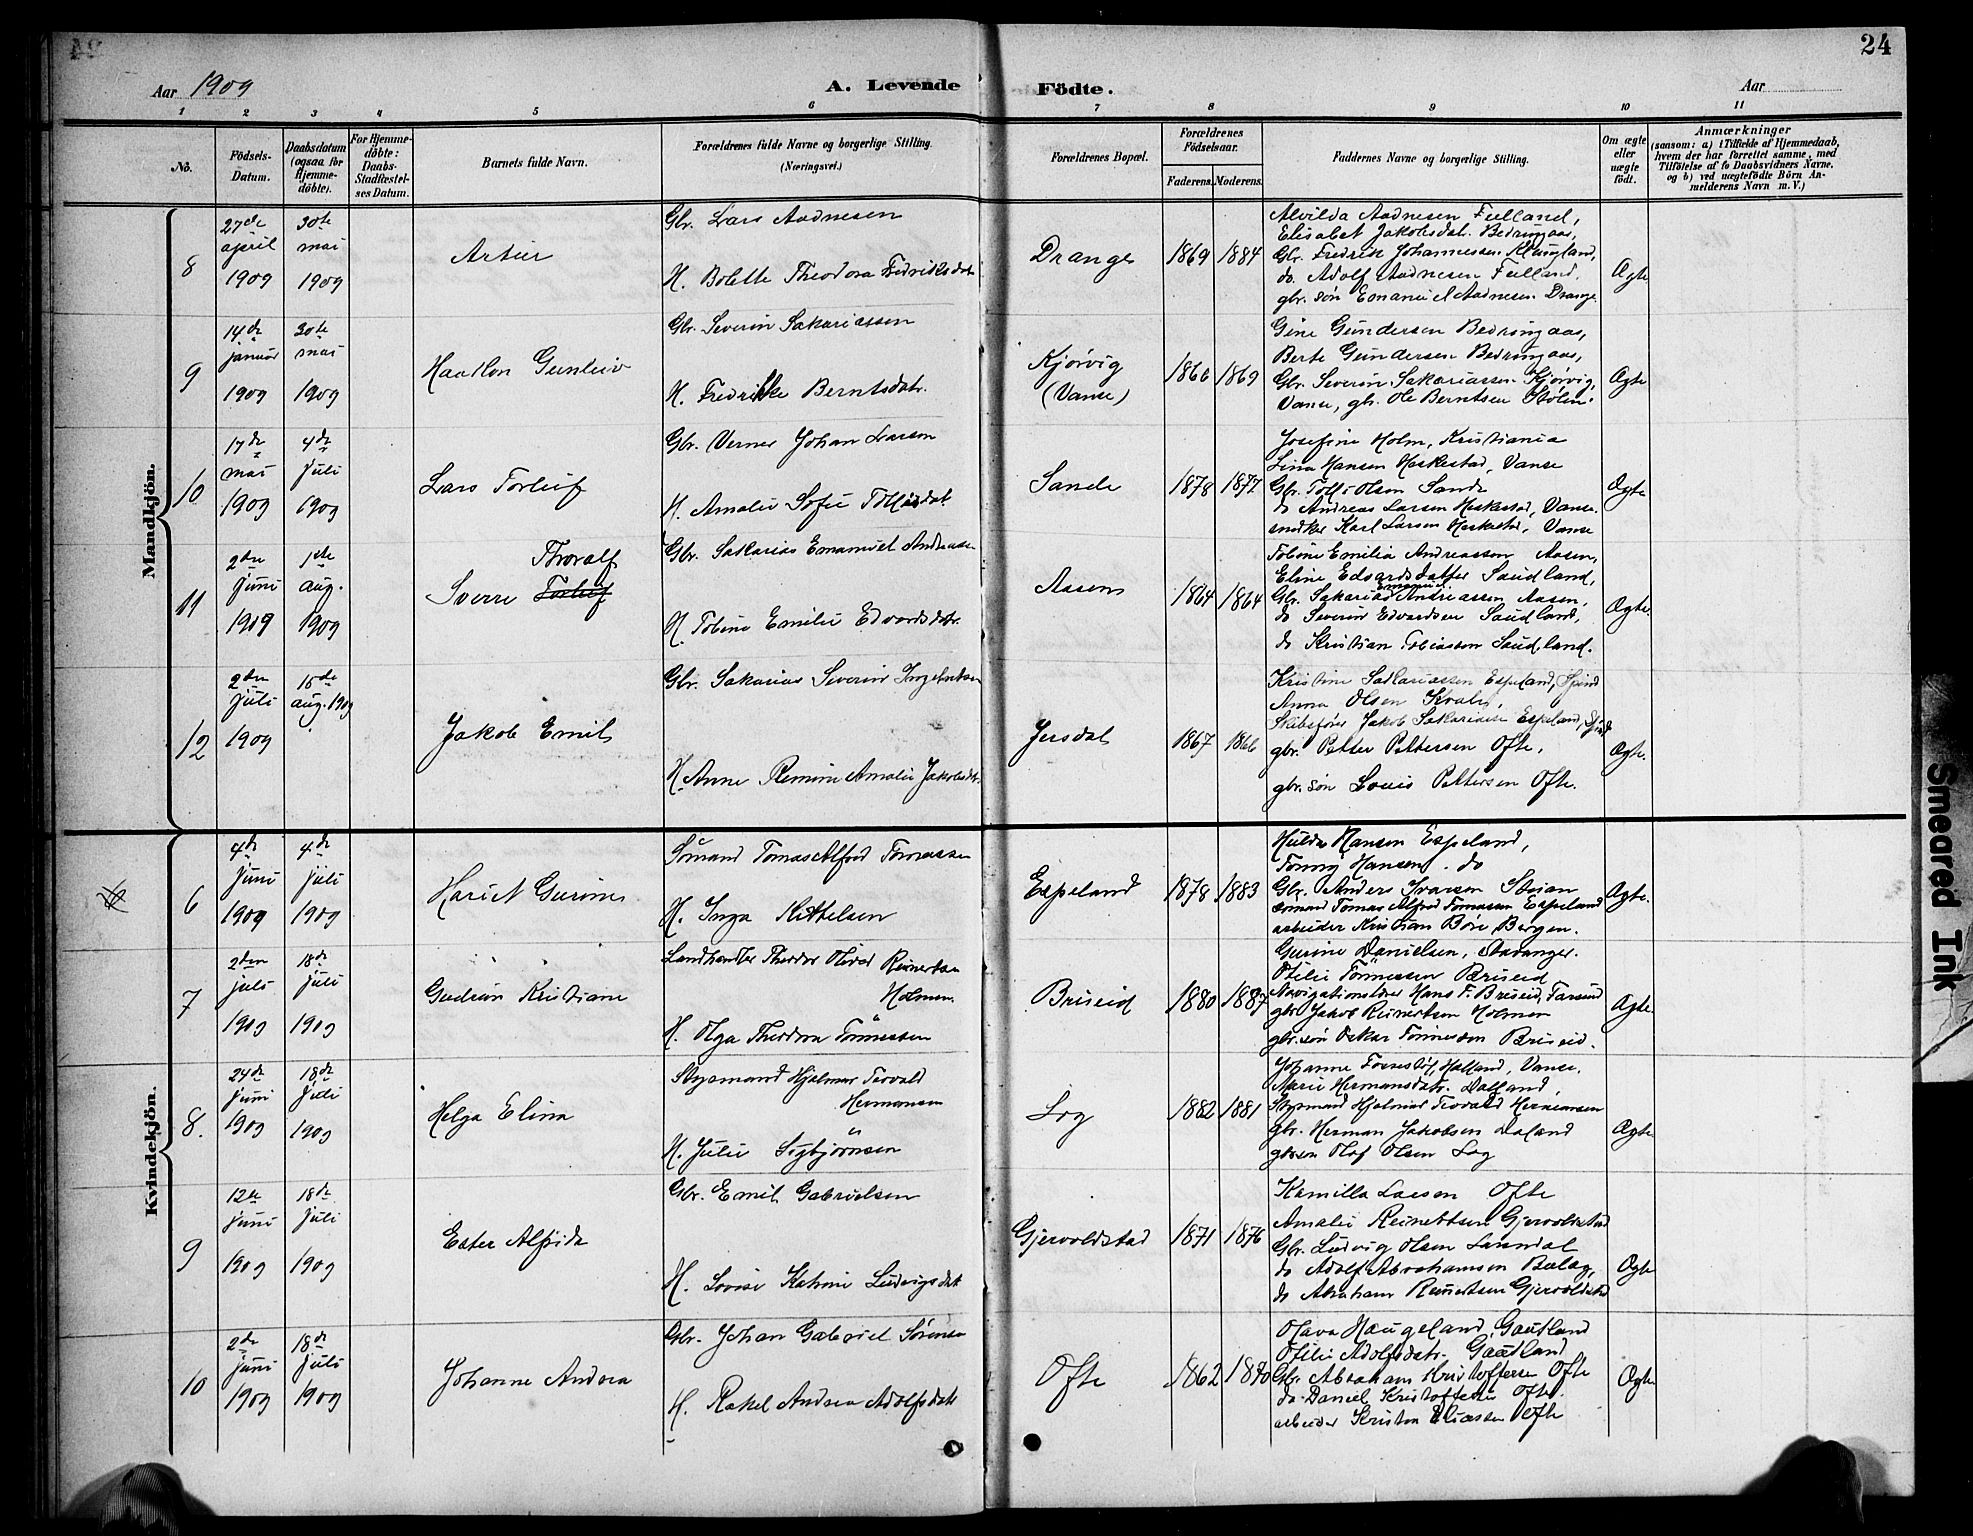 24
Aar 1909
A. Levende Födte.
Aar
1 2 3 4 5 6 7 8 9 10 11
No.
Födsels-Datum.
Daabsdatum (ogsaa for Hjemme-döbte).
For Hjemme-döbte: Daabs-Stadfæstel-ses Datum.
Barnets fulde Navn.
Forældrenes fulde Navne og borgerlige Stilling. (Næringsvei.)
Forældrenes Bopæl.
Forældrenes Födselsaar.
Faderens. Moderens.
Faddernes Navne og borgerlige Stilling.
Om ægte eller uægte födt.
Anmærkninger
(saasom: a) i Tilfælde af Hjemmedaab, hvem der har forrettet samme, med Tilföielse af to Daabsvidners Navne. og b) ved uægtefödte Börn Anmelderens Navn m. V.)
Mandkjön.
8
27de april 1909
30te mai 1909
Artur
Gbr. Lars Aadnesen
H. Bolette Theodora Fredriksdatr
Drange
1869 1884
Alvilda Aadnesen Fulland,
Elisabet Jakobsdatr. Bedringaas,
Gbr. Fredrik Johannessen Klungland,
do. Adolf Aadnesen Fulland.
gbr. søn Emanuel Aadnesen Drange.
Ægte
9
14de januar 1909
30te mai 1909
Haakon Gunleiv
Gbr. Severin Sakariassen
H. Fredrikke Berntsdatr.
Kjørvig (Vanse)
1866 1869
Gine Gundersen Bedringaas,
Berte Gundersen Bedringaas,
Gbr. Severin Sakariassen Kjørvig,
Vanse, gbr. Ole Berntsen Stølen.
Ægte
10
17de mai 1909
4de juli 1909
Lars Torleif
Gbr. Verner Johan Larsen
H. Amalie Sofie Tollisdat.
Sande
1878 1877
Josefine Holm, Kristiania
Lina Hansen Meskestad, Vanse
Gbr. Tolli Olsen Sande
do Andreas Larsen Meskestad, Vanse.
snedker Karl Larsen Meskestad, Vanse
Ægte
11
2den juni 1909
1ste aug. 1909
Sverre Torleif Thoralf
Gbr. Sakarias Emanuel Andreassen
H. Tobine Emilie Edvardsdatr.
Aasen
1864 1864
Tobine Emilia Andreassen Aasen,
Eline Edvardsdatter Saudland,
Gbr. Sakarias Emanuel Andreassen Aasen,
do Severin Edvardsen Saudland,
do Kristian Tobiassen Saudland.
Ægte.
12
2den juli 1909
15de aug. 1909
Jakob Emil
Gbr. Sakarias Severin Ingebretsen
H. Anne Remine Amalie Jakobsdtr.
Jersdal
1867 1866
Kristine Sakariassen Espeland, Spind
Anna Olsen Kvalv,
Skibsfører Jakob Sakariasen Espeland, Spind
gbr. Petter Pettersen Ofte,
gbr. søn Louis Pettersen Ofte.
Ægte.
Kvindekjön.
6
4de juni 1909
4de juli 1909
Hariet Gurine
Sömand Tomas Alfred Tomassen
H. Inga Kittelsen
Espeland
1878 1883
Hulda Hansen Espeland,
Tonny Hansen. do
Gbr. Anders Ivarsen Stuan
sömand Tomas Alfred Tomassen Espeland
arbeider Kristian Böre, Bergen.
Ægte.
7
2den juli 1909
18de juli 1909
Gudrun Kristiane
Landhandler Theodor Oliver Reinertsen Holmen
H. Olga Theodora Tönnessen
Briseid
1880 1887
Gurine Danielsen, Stavanger.
Otilie Tönnessen Briseid
Navigationslærer Hans F. Briseid, Farsund
gbr. Jakob Reinertsen Holmen
gbr. søn Oskar Tönnessen Briseid.
Ægte.
8.
24de juni 1909
18de juli 1909
Helga Elina
Styrmand Hjalmar Tervald Hermansen
H. Julie Sigbjörnsen
Log
1882 1881
Johanne Halland, Vanse.
Marie Hermansdatr. Dalland,
Styrmand Hjalmar Tervald Hermansen
gbr. Herman Jakobsen Daland
gbrsøn Olaf Olsen Log
Ægte.
9
12te juni 1909
18de juli 1909
Ester Alfrida
Gbr. Emil Gabrielsen
H. Lovise Katrine Ludvigsdat
Gjervoldstad
1871 1876
Kamilla Larsen Ofte
Amalie Reinertsen Gjervoldstad
Gbr. Ludvig Olsen Sanndal
do Adolf Abrahamsen Bølag,
do Abraham Reinertsen Gjervoldstad
Ægte
10
2den juni 1909
18de juli 1909
Johanne Andrea
Gbr. Johan Gabriel Sörensen
H. Rakel Andrea Adolfsdatr
Ofte
1862 1870
Olava Haugeland, Gautland
Otilie Adolfsdatr. Gautland
Gbr. Abraham Kristoffersen Ofte
do Daniel Kristoffersen Ofte.
arbeider Kristen Eliassen Ofte
Ægte.
Smeared Ink